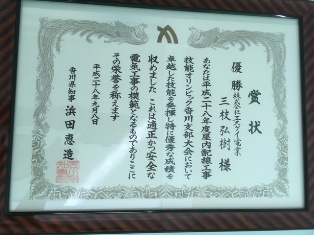 賞状
優勝 株式会社エクイ電業
三枝弘樹 様
あなたは平成二十八年度屋内配線工事
技能オリンピック香川支部大会において
卓越した技能を発揮し特に優秀な成績を
収めました これは適正かつ安全な
電気工事の模範となるものでありここに
その栄誉を称えます
平成二十八年九月八日
香川県知事 浜田恵造